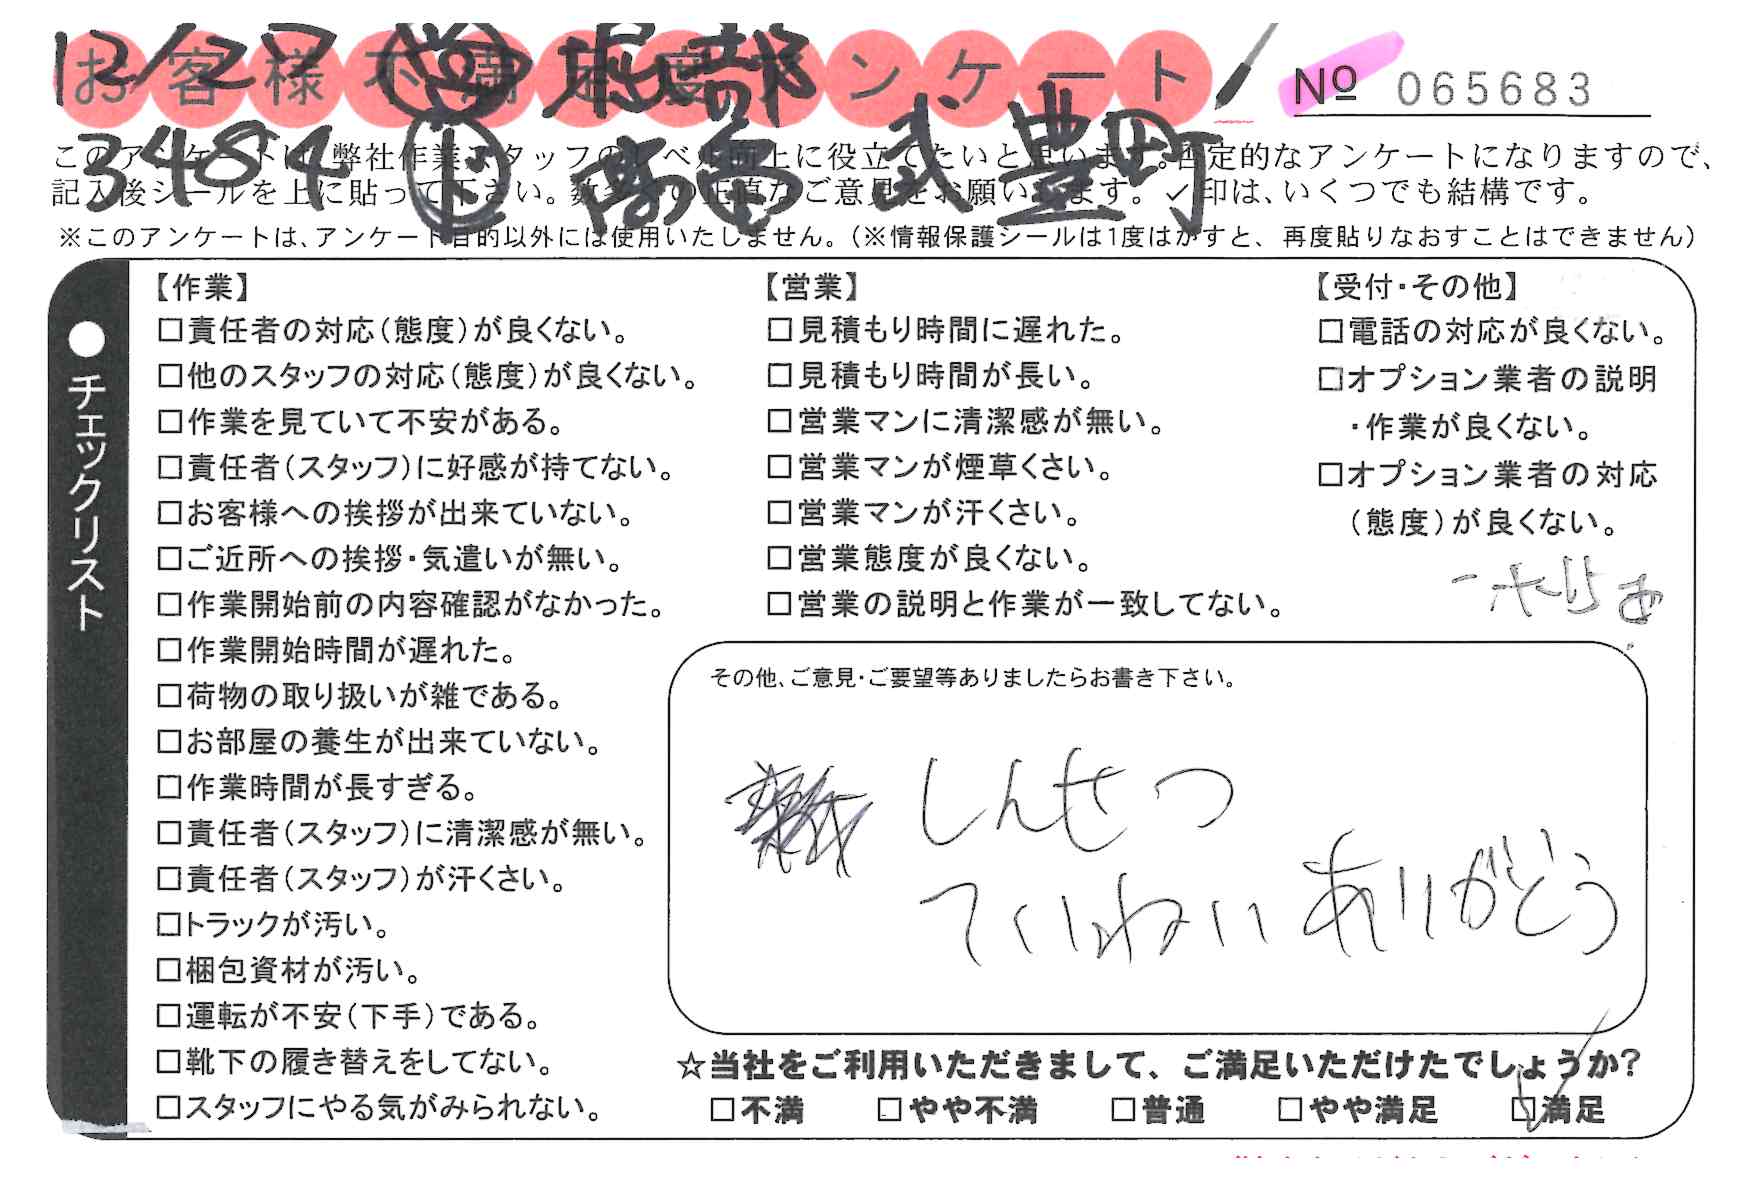 12/27 営 服部
お客様不満足度アンケート
№ 065683
3484 下 高畠 武豊町
このアンケートは、弊社作業スタッフのレベル向上に役立てたいと思います。否定的なアンケートになりますので、
記入後シールを上に貼って下さい。数多くの正直なご意見をお願いします。✓印は、いくつでも結構です。
※このアンケートは、アンケート目的以外には使用いたしません。(※情報保護シールは1度はがすと、再度貼りなおすことはできません)
●チェックリスト
【作業】
□責任者の対応(態度)が良くない。
□他のスタッフの対応(態度)が良くない。
□作業を見ていて不安がある。
□責任者(スタッフ)に好感が持てない。
□お客様への挨拶が出来ていない。
□ご近所への挨拶・気遣いが無い。
□作業開始前の内容確認がなかった。
□作業開始時間が遅れた。
□荷物の取り扱いが雑である。
□お部屋の養生が出来ていない。
□作業時間が長すぎる。
□責任者(スタッフ)に清潔感が無い。
□責任者(スタッフ)が汗くさい。
□トラックが汚い。
□梱包資材が汚い。
□運転が不安(下手)である。
□靴下の履き替えをしてない。
□スタッフにやる気がみられない。
【営業】
□見積もり時間に遅れた。
□見積もり時間が長い。
□営業マンに清潔感が無い。
□営業マンが煙草くさい。
□営業マンが汗くさい。
□営業態度が良くない。
□営業の説明と作業が一致してない。
【受付・その他】
□電話の対応が良くない。
□オプション業者の説明
・作業が良くない。
□オプション業者の対応
(態度)が良くない。
その他、ご意見・ご要望等ありましたらお書き下さい。
しんせつ
ていねい ありがとう
☆当社をご利用いただきまして、ご満足いただけたでしょうか?
□不満 □やや不満 □普通 □やや満足 ☑満足